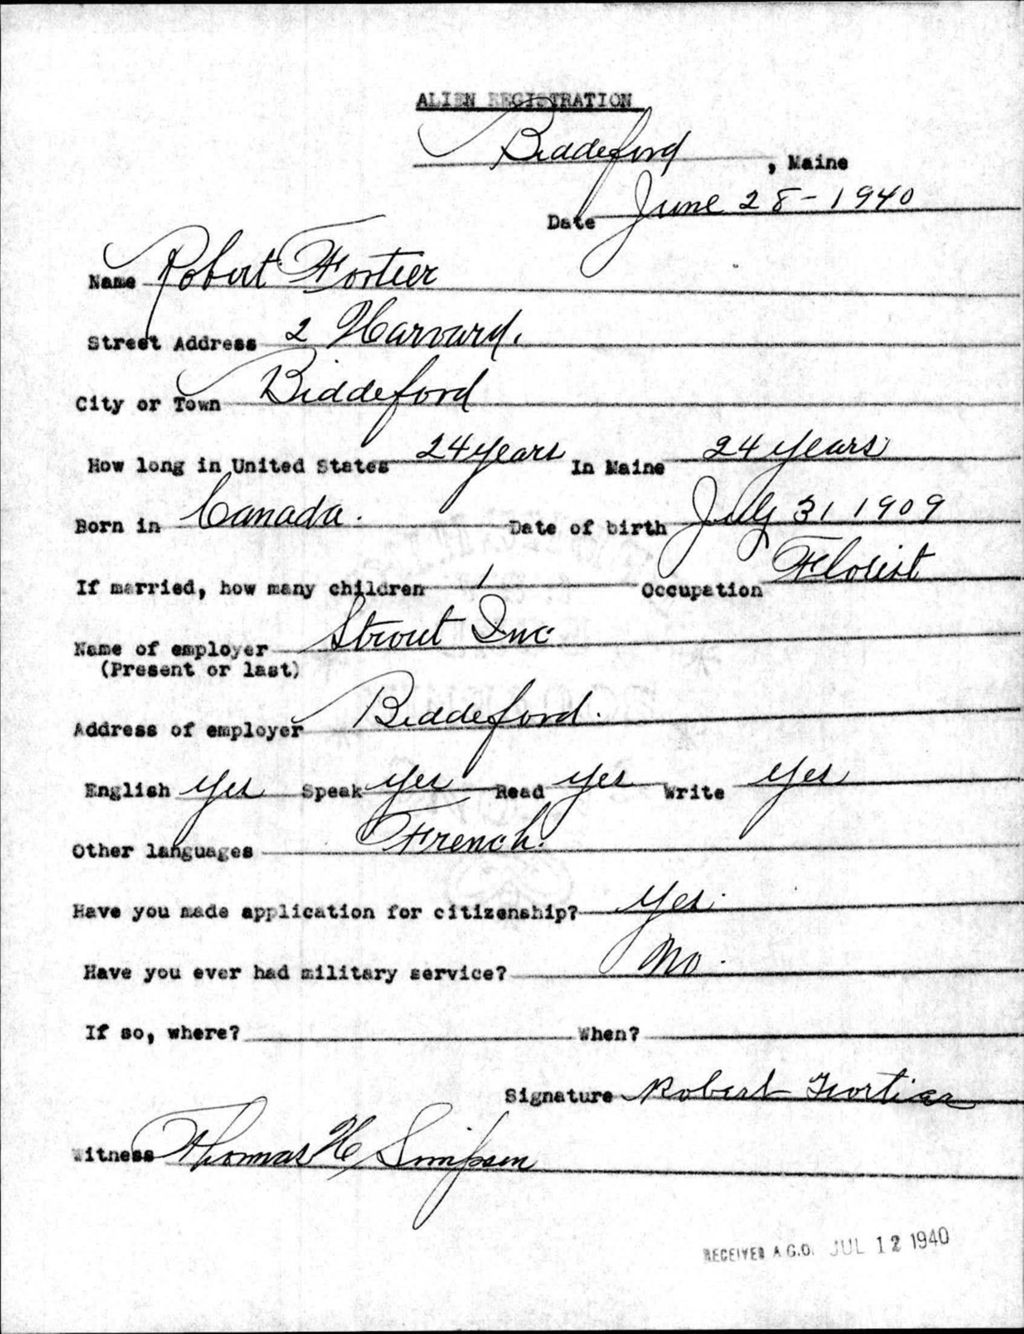 ALIEN REGISTRATION
Biddeford, Maine
Date June 28-1940
Name Robert Fortier
Street Address 2 Harvard.
City or Town Biddeford
How long in United States 24 years In Maine 24 years
Born in Canada. Date of birth July 31 1909
If married, how many children 1 Occupation Florist
Name of employer Strout Inc
(Present or last)
Address of employer Biddeford.
English yes Speak yes Read yes Write yes
Other languages French.
Have you made application for citizenship? yes.
Have you ever had military service? No.
If so, where? When?
Signature Robert Fortier
Witness Thomas H Simpson
RECEIVED A.G.O. JUL 12 1940